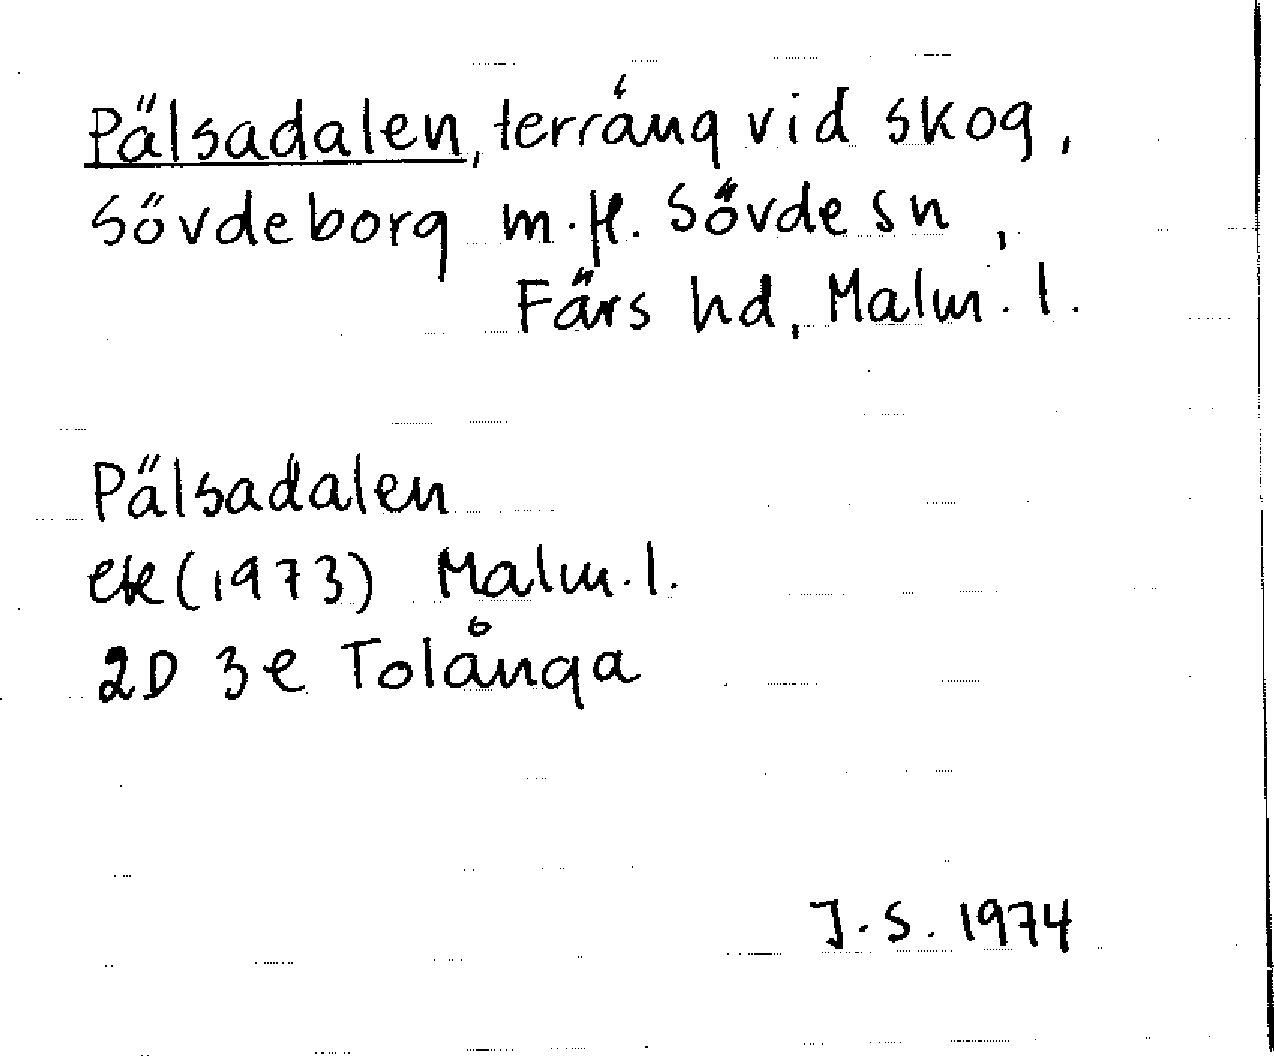 Pälsadalen, terräng vid skog,
Sövdeborg m.fl. Sövde sn,
Färs hd, Malm. l.
Pälsadalen
ek (1973) Malm. l.
2D 3e Tolånga
J. S. 1974